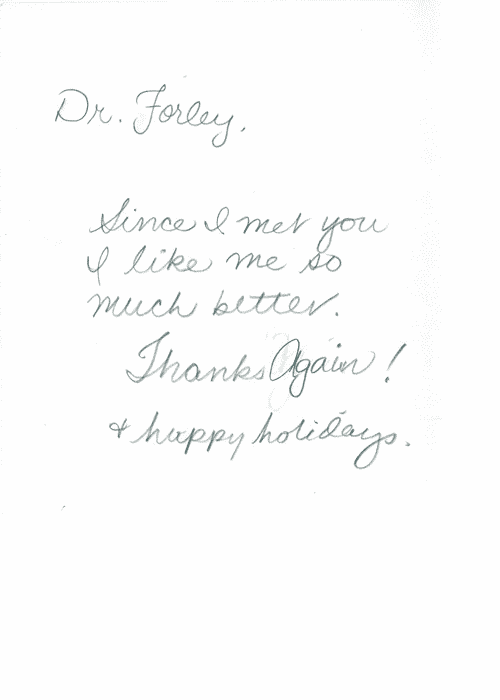 Dr. Forley,
Since I met you
I like me so
much better.
Thanks Again!
& happy holidays.